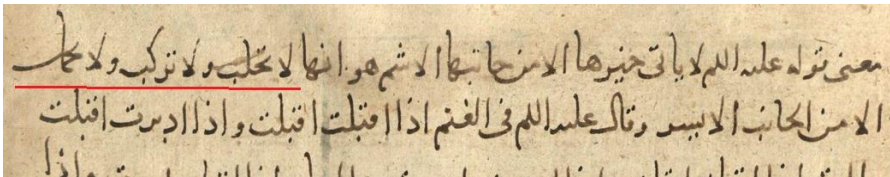 معنى قوله عليه السلم لا ياتي خيرها الا من جانبها الاشم هو انها لا تحلب ولا تركب ولا تحمل
الا من الجانب الايسر وقال عليه السلم فى الغنم اذا اقبلت اقبلت واذا ادبرت اقبلت